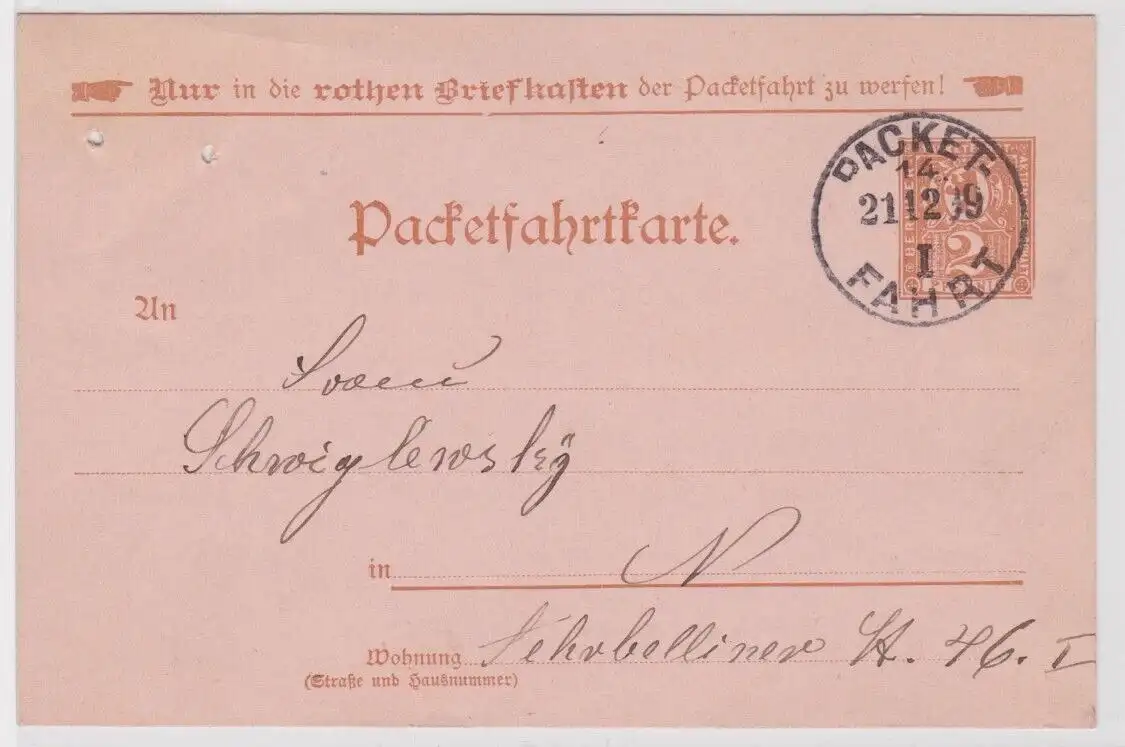 Nur in die rothen Briefkasten der Packetfahrt zu werfen!
PACKET-
14.
21 12 99
I
FAHRT
2
Packetfahrtkarte.
An
Schwiglewsky
in N
Wohnung Fehrbelliner St. 46. I
(Straße und Hausnummer)